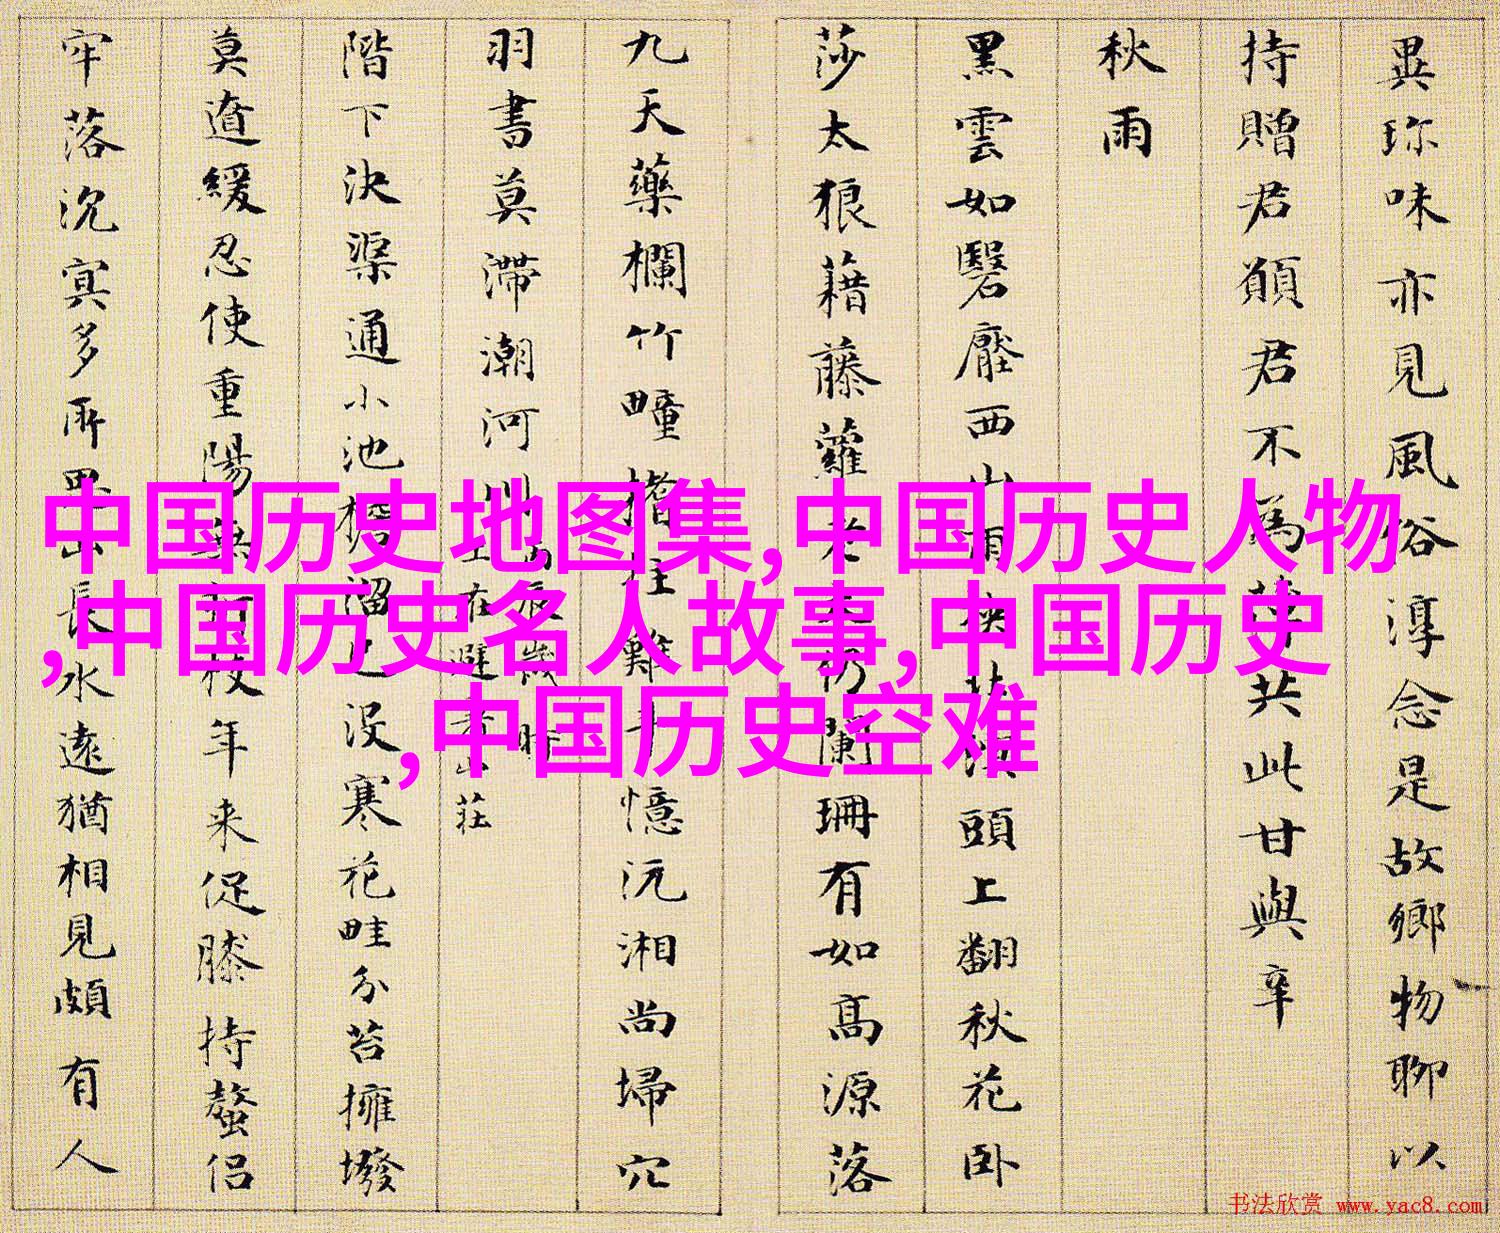 異珎味亦見風俗淳念是故鄉物聊以
持贈君願君不為薄共此甘與辛
秋雨
黑雲如翳壓西山雨頭上翻秋花卧
莎太狼藉藤蘿闌珊有如高源落
九天藥欄竹疃憶沅湘尚埽穴
羽書莫滯潮河川
在避
山莊
階下決渠通小池溜已沒寒花畦分苔擁墢
莫遒緩忍使重陽年来促膝持螯侶
牢落沉冥多所長水遠猶相見頗有人
中国历史地图集,中国历史人物
,中国历史名人故事,中国历史
,中国历史空难
书法欣赏 www.yac8.com